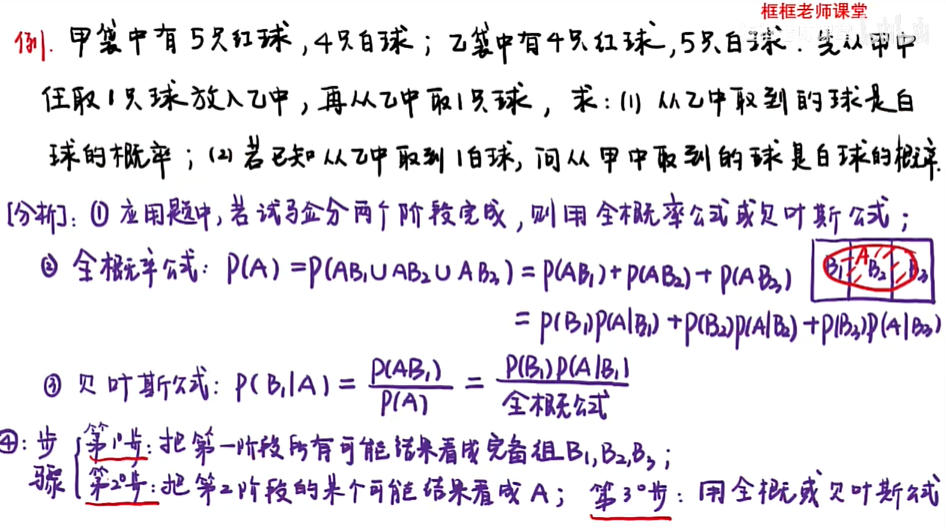 框框老师课堂
例. 甲袋中有5只红球,4只白球;乙袋中有4只红球,5只白球.先从甲中
任取1只球放入乙中,再从乙中取1只球,求:(1) 从乙中取到的球是白
球的概率;(2) 若已知从乙中取到1白球,问从甲中取到的球是白球的概率.
[分析]: ① 应用题中,若试验分两个阶段完成,则用全概率公式或贝叶斯公式;
② 全概率公式: P(A) = P(AB₁∪AB₂∪AB₃) = P(AB₁)+P(AB₂)+P(AB₃)
B₁ A B₂ B₃
= P(B₁)P(A|B₁)+P(B₂)P(A|B₂)+P(B₃)P(A|B₃)
③ 贝叶斯公式: P(B₁|A) = P(AB₁)/P(A) = P(B₁)P(A|B₁)/全概公式
④: 步骤 第1°步: 把第一阶段所有可能结果看成完备组B₁,B₂,B₃;
第2°步: 把第2阶段的某个可能结果看成A; 第3°步: 用全概或贝叶斯公式